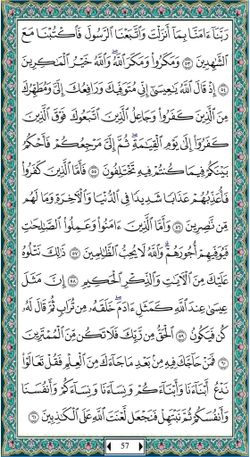 رَبَّنَآ ءَامَنَّا بِمَآ أَنزَلْتَ وَٱتَّبَعْنَا ٱلرَّسُولَ فَٱكْتُبْنَا مَعَ
ٱلشَّٰهِدِينَ ٥٣ وَمَكَرُوا۟ وَمَكَرَ ٱللَّهُ ۖ وَٱللَّهُ خَيْرُ ٱلْمَٰكِرِينَ
٥٤ إِذْ قَالَ ٱللَّهُ يَٰعِيسَىٰٓ إِنِّى مُتَوَفِّيكَ وَرَافِعُكَ إِلَىَّ وَمُطَهِّرُكَ
مِنَ ٱلَّذِينَ كَفَرُوا۟ وَجَاعِلُ ٱلَّذِينَ ٱتَّبَعُوكَ فَوْقَ ٱلَّذِينَ
كَفَرُوٓا۟ إِلَىٰ يَوْمِ ٱلْقِيَٰمَةِ ۖ ثُمَّ إِلَىَّ مَرْجِعُكُمْ فَأَحْكُمُ
بَيْنَكُمْ فِيمَا كُنتُمْ فِيهِ تَخْتَلِفُونَ ٥٥ فَأَمَّا ٱلَّذِينَ كَفَرُوا۟
فَأُعَذِّبُهُمْ عَذَابًا شَدِيدًا فِى ٱلدُّنْيَا وَٱلْءَاخِرَةِ وَمَا لَهُم
مِّن نَّٰصِرِينَ ٥٦ وَأَمَّا ٱلَّذِينَ ءَامَنُوا۟ وَعَمِلُوا۟ ٱلصَّٰلِحَٰتِ
فَيُوَفِّيهِمْ أُجُورَهُمْ ۗ وَٱللَّهُ لَا يُحِبُّ ٱلظَّٰلِمِينَ ٥٧ ذَٰلِكَ نَتْلُوهُ
عَلَيْكَ مِنَ ٱلْءَايَٰتِ وَٱلذِّكْرِ ٱلْحَكِيمِ ٥٨ إِنَّ مَثَلَ
عِيسَىٰ عِندَ ٱللَّهِ كَمَثَلِ ءَادَمَ ۖ خَلَقَهُۥ مِن تُرَابٍ ثُمَّ قَالَ لَهُۥ
كُن فَيَكُونُ ٥٩ ٱلْحَقُّ مِن رَّبِّكَ فَلَا تَكُن مِّنَ ٱلْمُمْتَرِينَ
٦٠ فَمَنْ حَآجَّكَ فِيهِ مِنۢ بَعْدِ مَا جَآءَكَ مِنَ ٱلْعِلْمِ فَقُلْ تَعَالَوْا۟
نَدْعُ أَبْنَآءَنَا وَأَبْنَآءَكُمْ وَنِسَآءَنَا وَنِسَآءَكُمْ وَأَنفُسَنَا
وَأَنفُسَكُمْ ثُمَّ نَبْتَهِلْ فَنَجْعَل لَّعْنَتَ ٱللَّهِ عَلَى ٱلْكَٰذِبِينَ ٦١
57